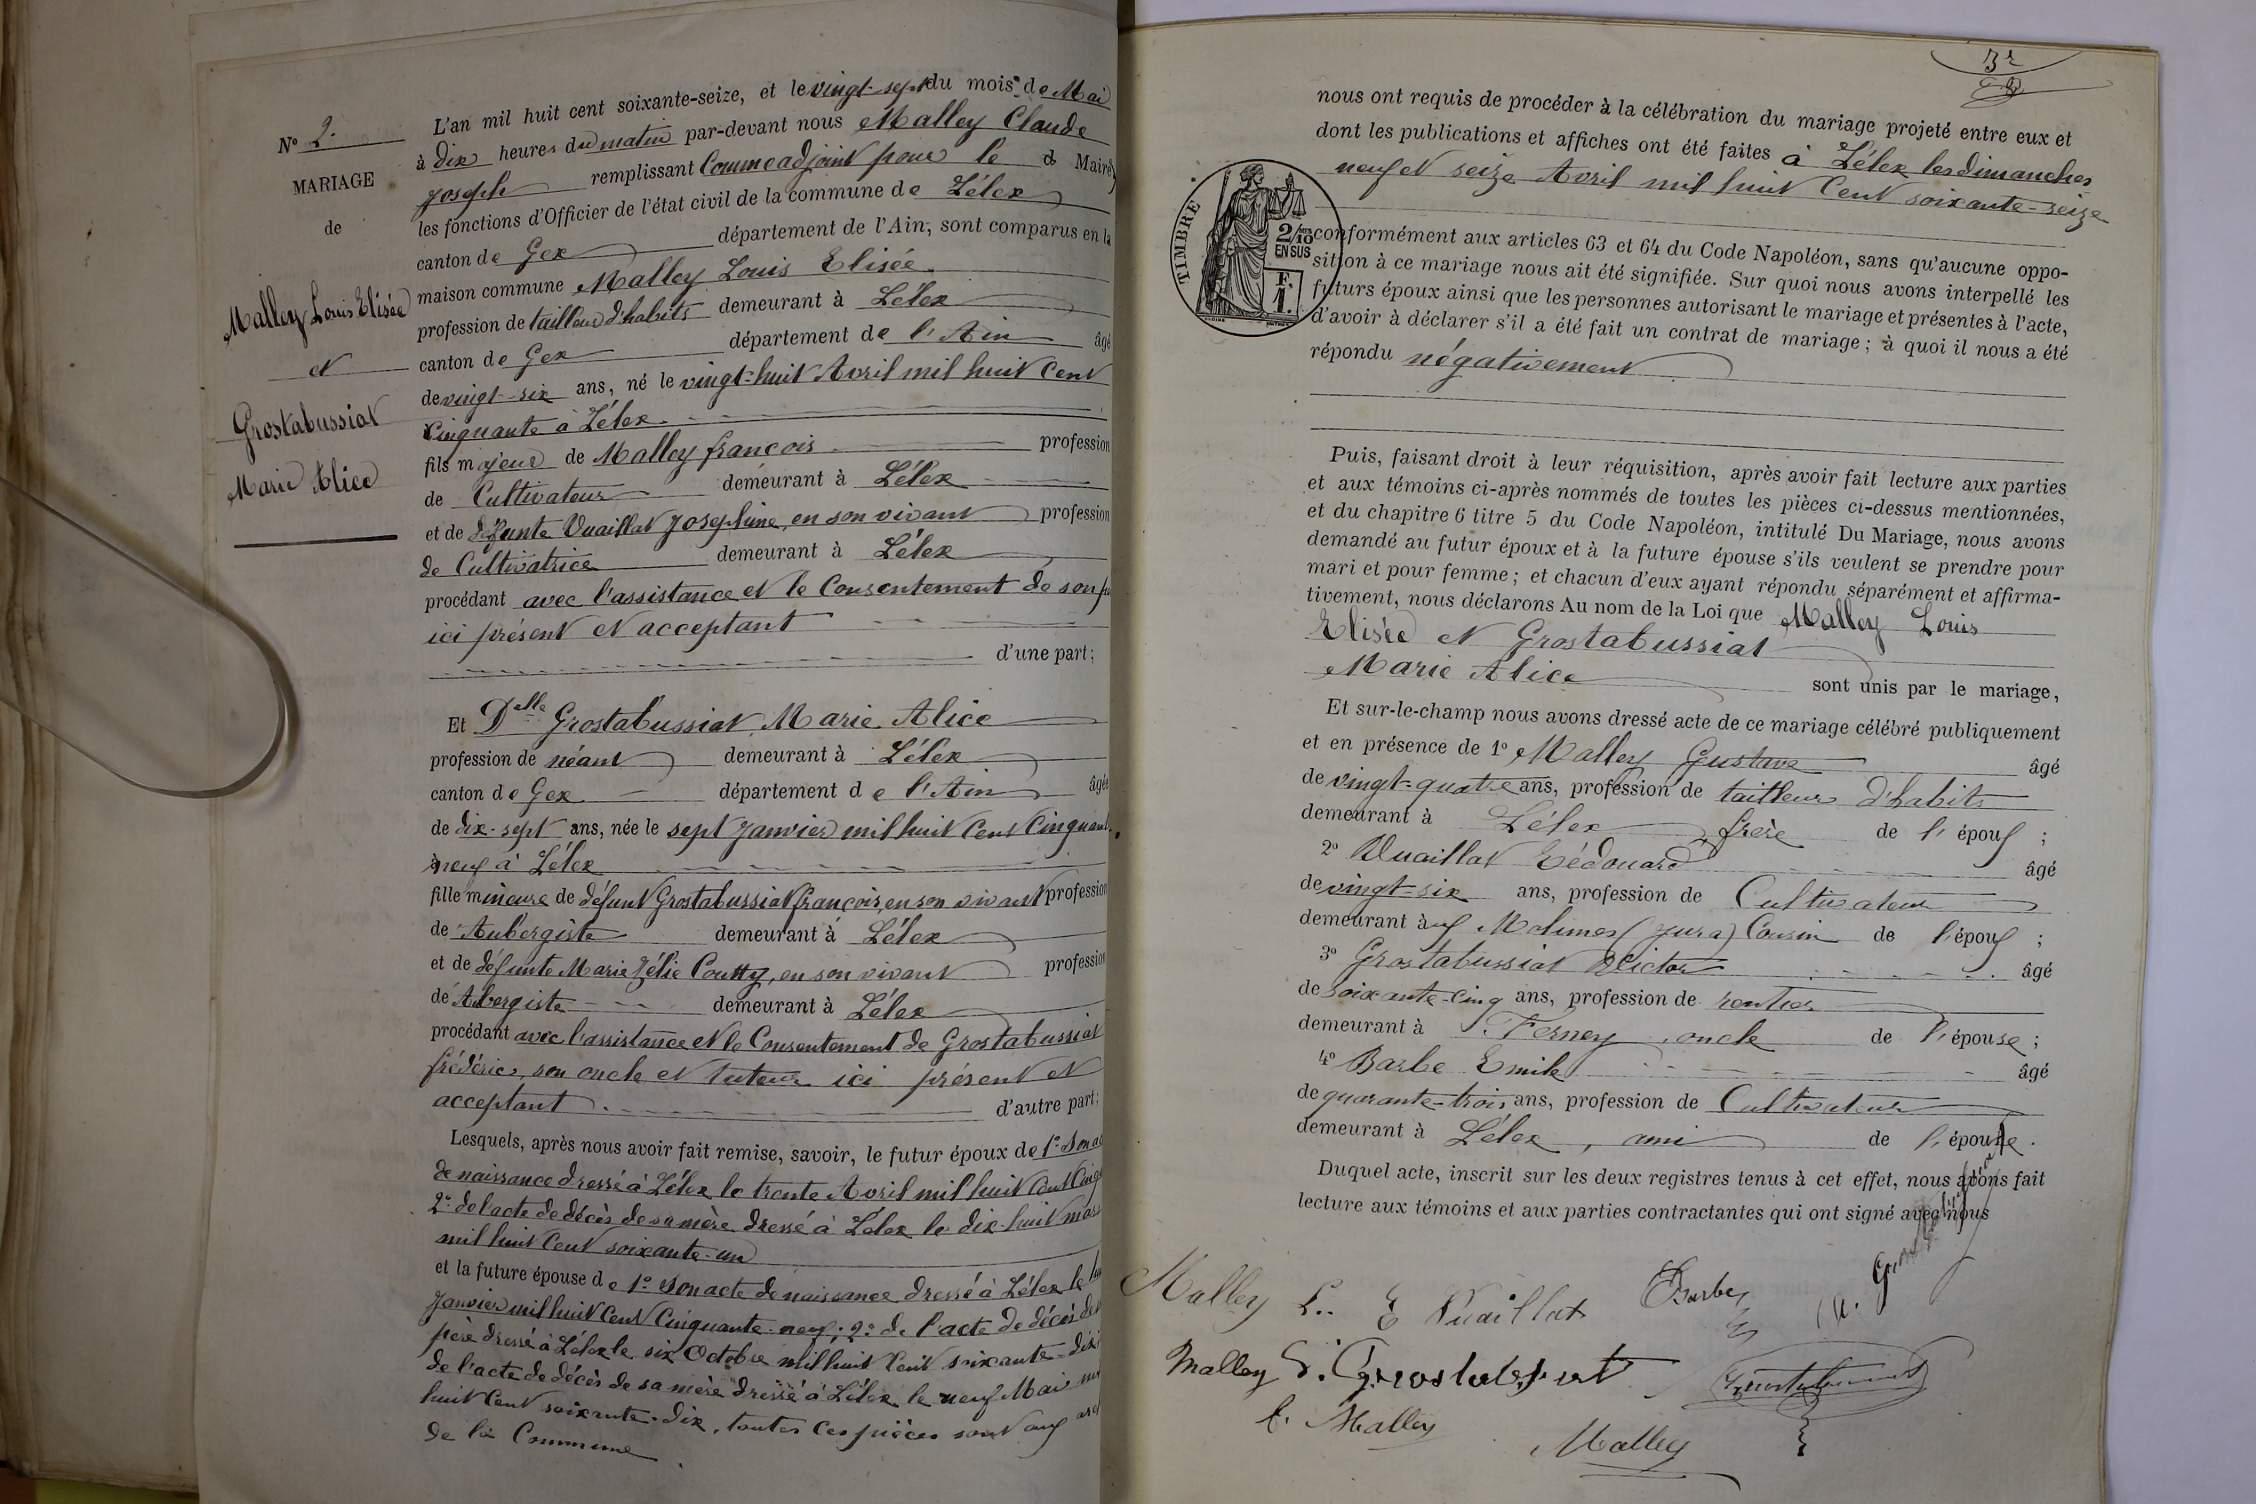 N° 2.
MARIAGE
de
Malley Louis Elisée
et
Grostabussiat
Marie Alice
L'an mil huit cent soixante-seize, et le vingt-sept du mois de Mai
à dix heures du matin par-devant nous Malley Claude
joseph remplissant comme adjoint pour le Maire
les fonctions d'Officier de l'état civil de la commune de Lélex
canton de Gex département de l'Ain, sont comparus en la
maison commune Malley Louis Elisée
profession de tailleur d'habits demeurant à Lélex
canton de Gex département de l'Ain âgé
de vingt-six ans, né le vingt-huit Avril mil huit cent
cinquante à Lélex
fils majeur de Malley françois profession
de Cultivateur demeurant à Lélex
et de défunte Vuaillat Joséphine, en son vivant profession
de Cultivatrice demeurant à Lélex
procédant avec l'assistance et le consentement de son
ici présent et acceptant
d'une part;
Et Delle Grostabussiat Marie Alice
profession de néant demeurant à Lélex
canton de Gex département de l'Ain âgée
de dix-sept ans, née le sept Janvier mil huit cent cinquante
neuf à Lélex
fille mineure de défunt Grostabussiat françois, en son vivant profession
de Aubergiste demeurant à Lélex
et de défunte Marie Zélie Coutty, en son vivant profession
de Aubergiste demeurant à Lélex
procédant avec l'assistance et le consentement de Grostabussiat
frédéric, son oncle et tuteur ici présent et
acceptant. d'autre part;
Lesquels, après nous avoir fait remise, savoir, le futur époux de 1° Son
de naissance dressé à Lélex le trente Avril mil huit cent
2° de l'acte de décès de sa mère dressé à Lélex le dix-huit mars
mil huit cent soixante-un
et la future épouse de 1° son acte de naissance dressé à Lélex le
Janvier mil huit cent cinquante-neuf; 2° de l'acte de décès de
père dressé à Lélex le six Octobre mil huit cent soixante-dix
de l'acte de décès de sa mère dressé à Lélex le neuf Mai
huit cent soixante-dix, toutes ces pièces sont aux
de la Commune
nous ont requis de procéder à la célébration du mariage projeté entre eux et
dont les publications et affiches ont été faites à Lélex les dimanches
neuf et seize Avril mil huit cent soixante-seize
TIMBRE
2/10
EN SUS
F.
1.
conformément aux articles 63 et 64 du Code Napoléon, sans qu'aucune oppo-
sition à ce mariage nous ait été signifiée. Sur quoi nous avons interpellé les
futurs époux ainsi que les personnes autorisant le mariage et présentes à l'acte,
d'avoir à déclarer s'il a été fait un contrat de mariage; à quoi il nous a été
répondu négativement
Puis, faisant droit à leur réquisition, après avoir fait lecture aux parties
et aux témoins ci-après nommés de toutes les pièces ci-dessus mentionnées,
et du chapitre 6 titre 5 du Code Napoléon, intitulé Du Mariage, nous avons
demandé au futur époux et à la future épouse s'ils veulent se prendre pour
mari et pour femme; et chacun d'eux ayant répondu séparément et affirma-
tivement, nous déclarons Au nom de la Loi que Malley Louis
Elisée et Grostabussiat
Marie Alice
sont unis par le mariage,
Et sur-le-champ nous avons dressé acte de ce mariage célébré publiquement
et en présence de 1° Malley Gustave âgé
de vingt-quatre ans, profession de tailleur d'habits
demeurant à Lélex, frère de l'époux;
2° Vuaillat Eédouard âgé
de vingt-six ans, profession de Cultivateur
demeurant aux Molunes (Jura) Cousin de l'époux;
3° Grostabussiat Victor âgé
de soixante-cinq ans, profession de rentier
demeurant à Ferney, oncle de l'épouse;
4° Barbe Emile âgé
de quarante-trois ans, profession de Cultivateur
demeurant à Lélex, ami de l'épouse.
Duquel acte, inscrit sur les deux registres tenus à cet effet, nous avons fait
lecture aux témoins et aux parties contractantes qui ont signé avec nous
Malley L. E Vuaillat Barbe
Malley
Malley
Malley